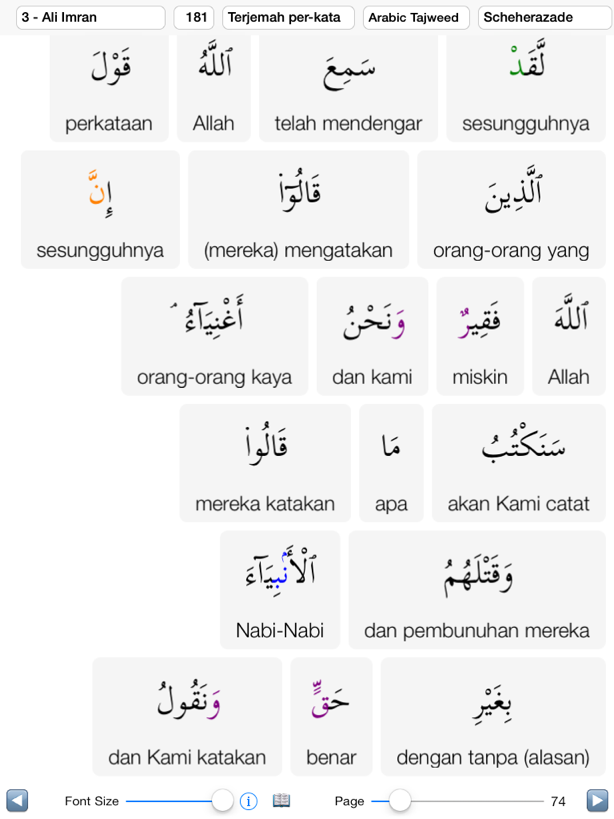 3 - Ali Imran 181 Terjemah per-kata Arabic Tajweed Scheherazade
لَّقَدْ سَمِعَ ٱللَّهُ قَوْلَ
sesungguhnya telah mendengar Allah perkataan
ٱلَّذِينَ قَالُوٓا۟ إِنَّ
orang-orang yang (mereka) mengatakan sesungguhnya
ٱللَّهَ فَقِيرٌ وَنَحْنُ أَغْنِيَآءُ ۘ
Allah miskin dan kami orang-orang kaya
سَنَكْتُبُ مَا قَالُوا۟
akan Kami catat apa mereka katakan
وَقَتْلَهُمُ ٱلْأَنۢبِيَآءَ
dan pembunuhan mereka Nabi-Nabi
بِغَيْرِ حَقٍّ وَنَقُولُ
dengan tanpa (alasan) benar dan Kami katakan
Font Size Page 74